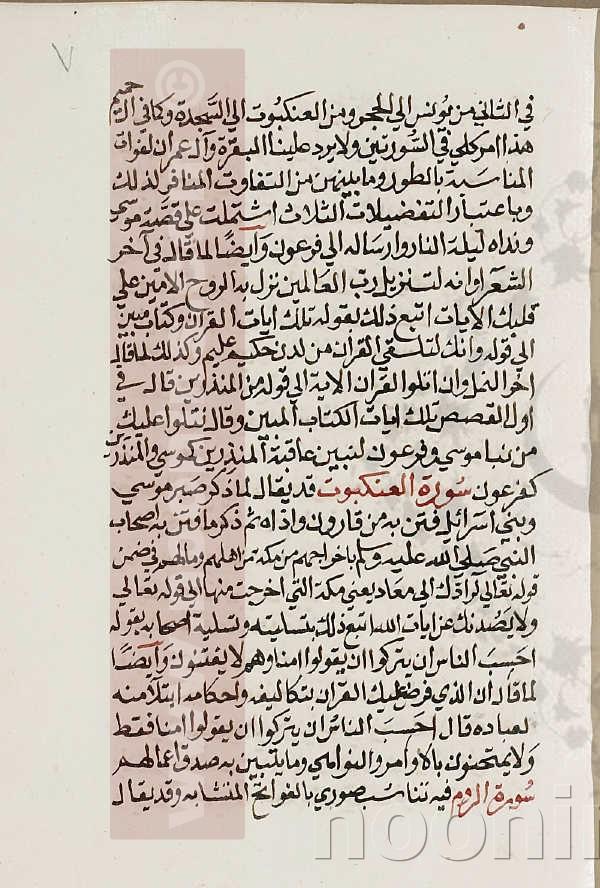 ٧
في الثاني من يونس الي الحجر ومن العنكبوت الي السجدة وكما في ال حميم
هذا امر كلي في السورتين ولا يرد علينا البقرة وآل عمران لفوات
المناسبة بالطور وما بينهن من التفاوت المنافر لذلك
وباعتبار التفضيلات الثلاث اشتملت علي قصة موسي
ونداه ليلة النار وارساله الي فرعون وايضا لما قال في آخر
الشعرا وانه لتنزيل رب العالمين نزل به الروح الامين علي
قلبك الآيات اتبع ذلك بقوله تلك ايات القران وكتاب مبين
الي قوله وانك لتلقي القران من لدن حكيم عليم وكذلك لما قال
اخر النمل وان اتلوا القران الاية الي قوله من المنذرين قال في
اول القصص تلك ايات الكتاب المبين وقال نتلوا عليك
من نبا موسي وفرعون لنبين عاقبة المنذرين كموسي والمنذرين
كفرعون سورة العنكبوت قد يقال لما ذكر صبر موسي
وبني اسرائيل فتن به من قارون واذاه ثم ذكر ما فتن به اصحاب
النبي صلي الله عليه وسلم باخراجهم من مكة من اهلهم ومالهم في ضمن
قوله تعالي لرادك الي معاد يعني مكة التي اخرجت منها الي قوله تعالي
ولا يصدنك عن ايات الله اتبع ذلك بتسليته وتسلية اصحابه بقوله
احسب الناس ان يتركوا ان يقولوا امنا وهم لا يفتنون وايضا
لما قال ان الذي فرض عليك القران بتكاليفه واحكامه ابتلا منه
لعباده قال احسب الناس ان يتركوا ان يقولوا امنا فقط
ولا يمتحنون بالاوامر والنواهي وما يتبين به صدق اعمالهم
سورة الروم فيه تناسب صوري بالفواتح المتشابه وقد يقال